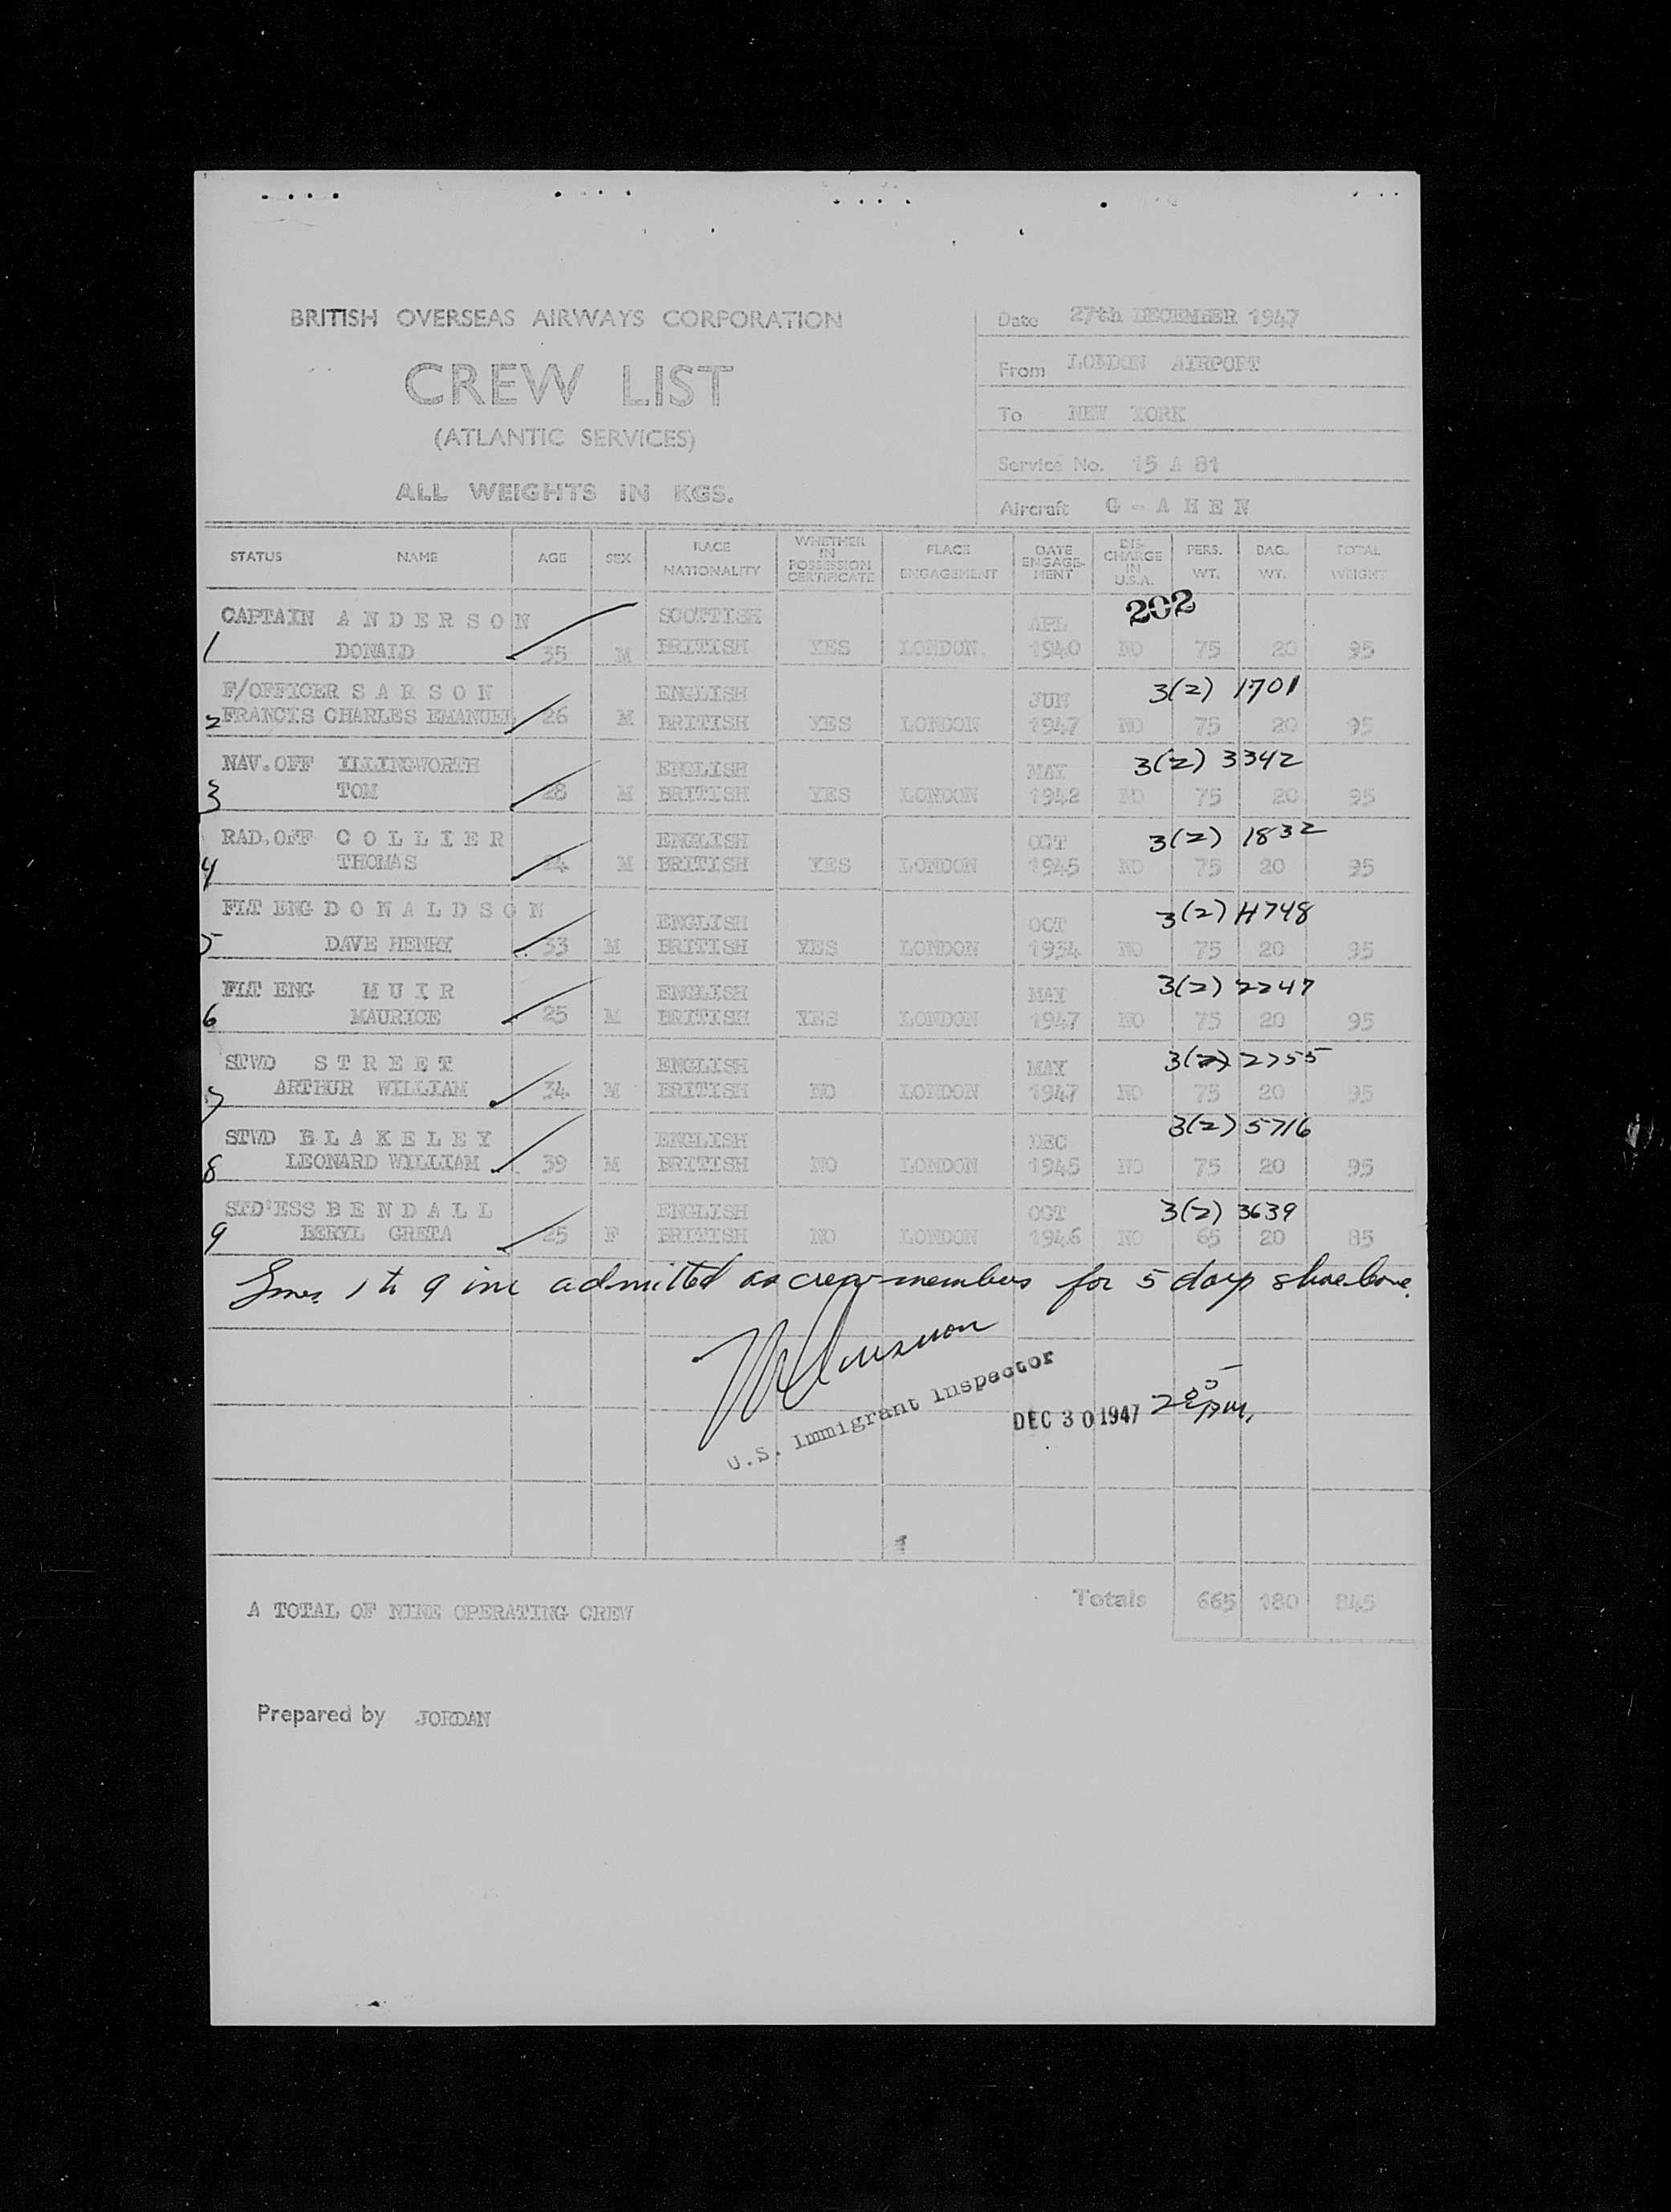 BRITISH OVERSEAS AIRWAYS CORPORATION
CREW LIST
(ATLANTIC SERVICES)
ALL WEIGHTS IN KGS.
Date 27th DECEMBER 1947
From LONDON AIRPORT
To NEW YORK
Service No. 15 A 81
Aircraft G - A H E N
STATUS NAME AGE SEX RACE NATIONALITY WHETHER IN POSSESSION CERTIFICATE PLACE ENGAGEMENT DATE ENGAGE-MENT DIS-CHARGE IN U.S.A. PERS. WT. BAG. WT. TOTAL WEIGHT
CAPTAIN A N D E R S O N SCOTTISH APL 202
1 DONALD 35 M BRITISH YES LONDON. 1940 NO 75 20 95
F/OFFICER S A R S O N ENGLISH JUN 3(2) 1701
2 FRANCIS CHARLES EMANUEL 26 M BRITISH YES LONDON 1947 NO 75 20 95
NAV.OFF ILLINGWORTH ENGLISH MAY 3(2) 3342
3 TOM 28 M BRITISH YES LONDON 1942 NO 75 20 95
RAD.OFF C O L L I E R ENGLISH OCT 3(2) 1832
4 THOMAS M BRITISH YES LONDON 1945 NO 75 20 95
FLT ENG D O N A L D S O N ENGLISH OCT 3(2) H748
5 DAVE HENRY 33 M BRITISH YES LONDON 1934 NO 75 20 95
FLT ENG M U I R ENGLISH MAY 3(2) 2247
6 MAURICE 25 M BRITISH YES LONDON 1947 NO 75 20 95
STWD S T R E E T ENGLISH MAY 3(2) 2755
7 ARTHUR WILLIAM 34 M BRITISH NO LONDON 1947 NO 75 20 95
STWD B L A K E L E Y ENGLISH DEC 3(2) 5716
8 LEONARD WILLIAM 39 M BRITISH NO LONDON 1945 NO 75 20 95
STD'ESS B E N D A L L ENGLISH OCT 3(2) 3639
9 BERYL GRETA 25 F BRITISH NO LONDON 1946 NO 65 20 85
Lines 1 to 9 inc admitted as crew members for 5 days shoreleave.
U.S. Immigrant Inspector
DEC 30 1947 PM.
A TOTAL OF NINE OPERATING CREW Totals 665 180 845
Prepared by JORDAN